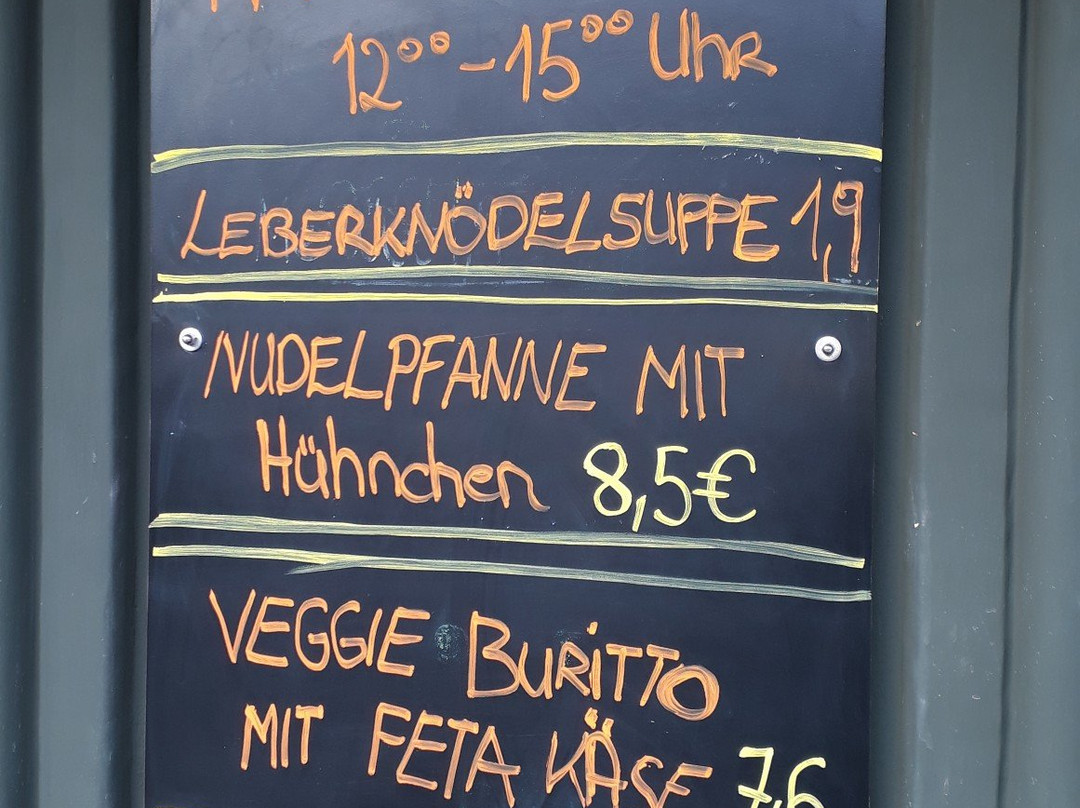 12⁰⁰-15⁰⁰ Uhr
LEBERKNÖDELSUPPE 1,9
NUDELPFANNE MIT
Hühnchen 8,5€
VEGGIE BURiTTO
MIT FETA KÄSE 7,6